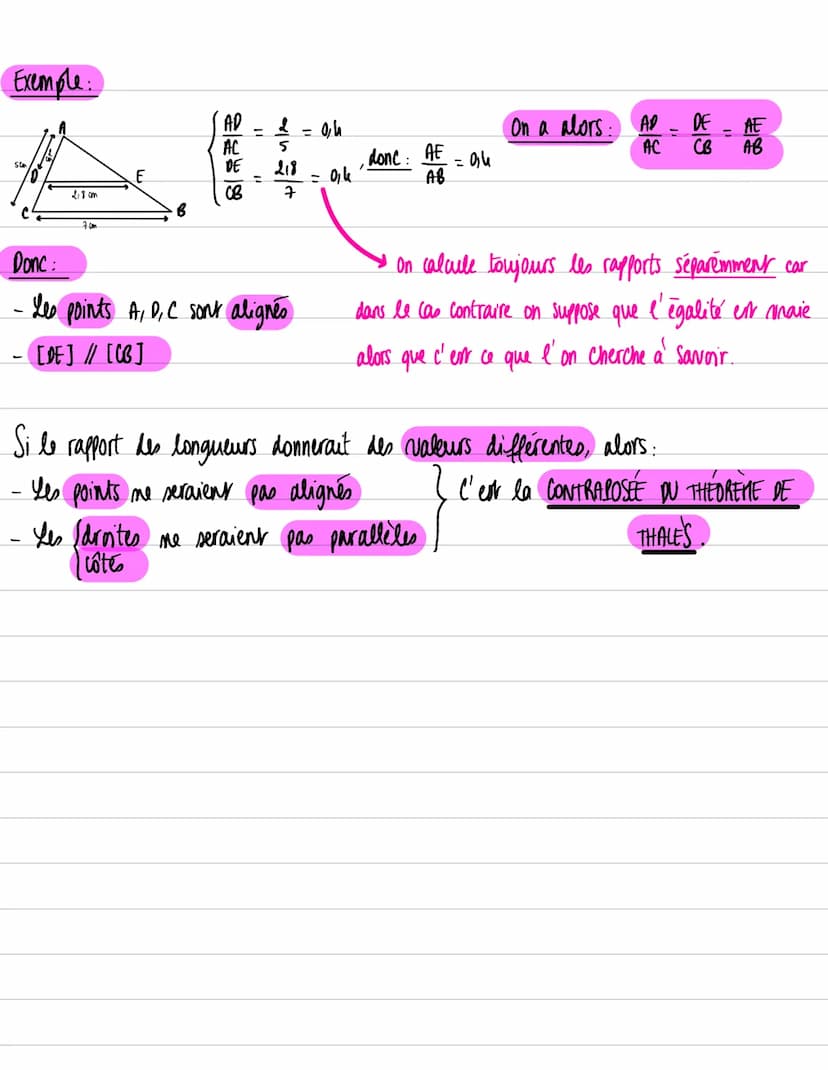 Exemple:
A
5cm
2cm
D
E
2,8 cm
C
B
7cm
AD/AC = 2/5 = 0,4
DE/CB = 2,8/7 = 0,4
, donc: AE/AB = 0,4
On a alors: AD/AC = DE/CB = AE/AB
Donc:
- Les points A, D, C sont alignés
- [DE] // [CB]
On calcule toujours les rapports séparemment car
dans le cas contraire on suppose que l'égalité est vraie
alors que c'est ce que l'on cherche à savoir.
Si le rapport des longueurs donnerait des valeurs différentes, alors:
- Les points ne seraient pas alignés
- Les {droites ne seraient pas parallèles
{côtés
} c'est la CONTRAPOSÉE DU THÉORÈME DE
THALÈS.